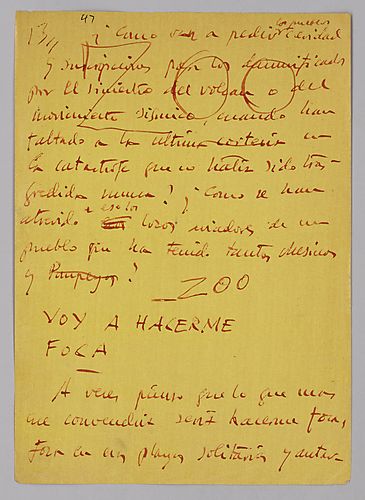 47
¡Como van a pedir los pueblos caridad
y suscripciones para los damnificados
por el siniestro del volcan o del
movimiento sismico, cuando han
faltado a la ultima cortesia en
la catastrofe que no había sido tras-
gredida nunca? ¿Como se han
atrevido a esa los
pueblo que ha tenido tantos
y Pompeyas?
ZOO
VOY A HACERME
FOCA
A veces pienso que lo que mas
me convendria será hacerme foca,
foca en las playas solitarias y